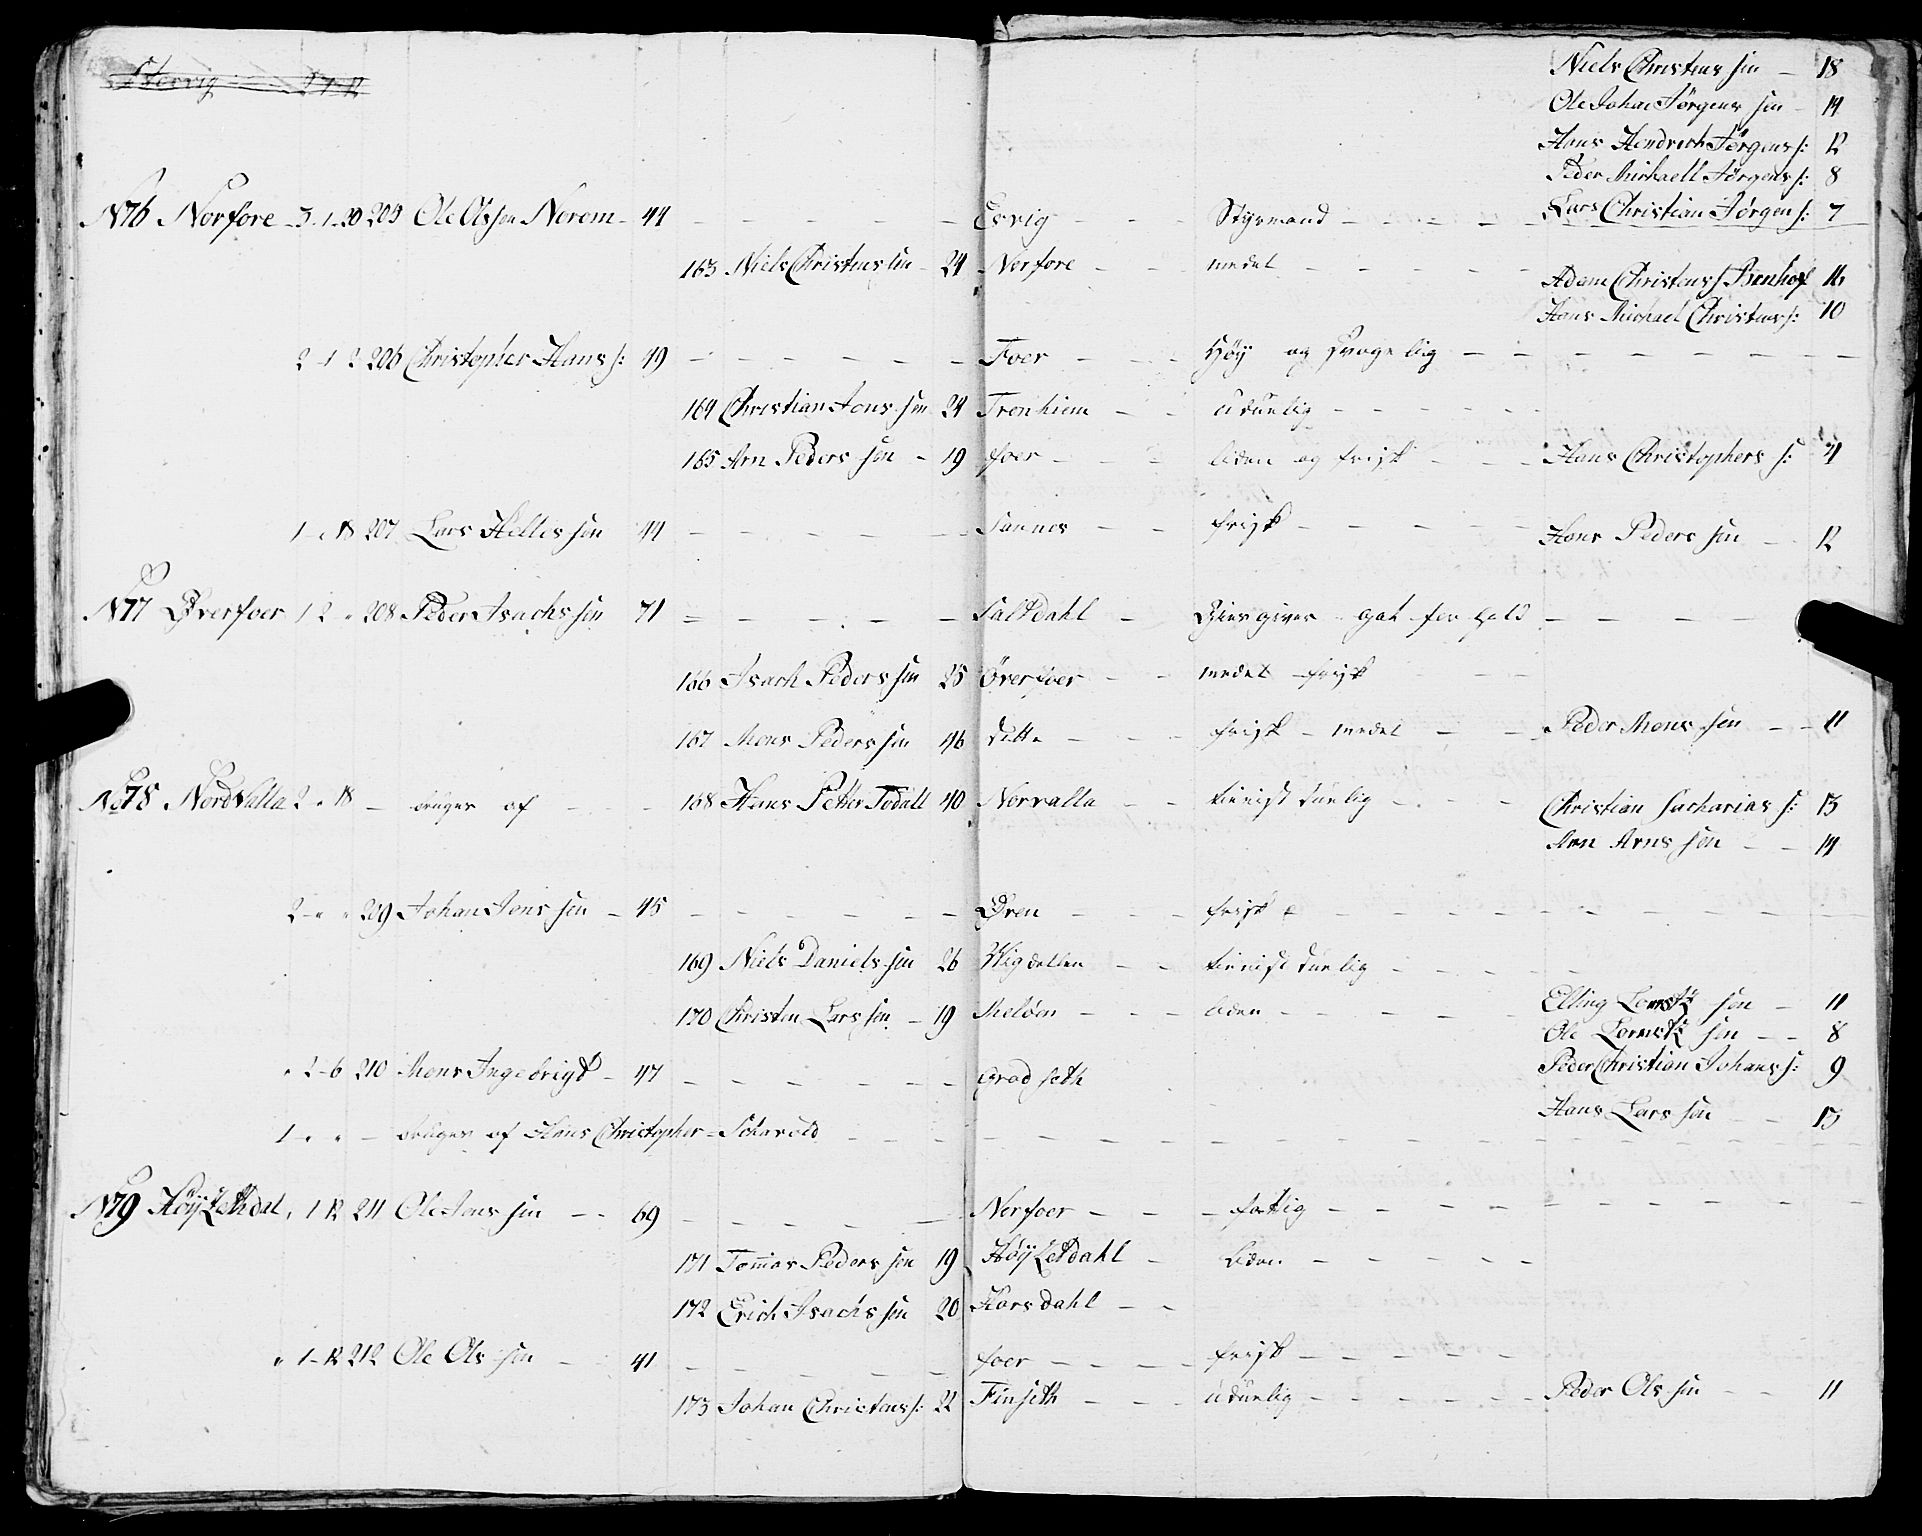 Niels Christens sen - 18
Ole Johan Jørgens sen - 14
Hans Hendrich Jørgens s: 12
Peder Michaell Jørgens s: 8
N 76 Norfore - 3 - 1 - 30 205 Ole Olssen Norem - 44 - - - - - Esvig - - - Styrmand - - - - - Lars Christian Jørgens: 7
163 Niels Christens sen - 24 Norfore - - - medel - - - - -
Adam Christens s Benhof 16
Hans Michael Christens s: 10
2 - 1 2 206 Christopher Hans s: 49 - - - - - Foer - - - Høy og svage lig - - - - - -
164 Christian Jons sen 24 Tronhiem - - - udunlig - - - - -
165 Arn Peders sen - 19 foer - - - liden og frisk - - - Hans Christophers s: 4
1 - " 18 207 Lars Helles sen 44 - - - - - Sannes - - frisk - - - - - Hans Peders sen - - 12
N 77 Øverfoer 1 2 " 208 Peder Isachs sen 71 - - - - - Saltdahl - Giesgiver gat for hold - - - -
166 Isach Peders sen 25 Øverfoer - - medel - frisk - - -
167 Mons Peders sen 46 ditto - - - frisk - medel - - - Peder Mons sen - - 11
No 78 Nordvalla 2 " 18 - bruges af - - - 168 Hans Petter Todall 40 Norvalla - - tienist dunlig - - - Christian Sacharias s: 13
Arn Arns sen - - 14
2 - " " 209 Johan Jons sen - 45 - - - - - Øren - - - frisk - - - - - - -
169 Niels Daniels sen 26 Wigdellen - - tienist dunlig - - - - -
170 Christen Lars sen - 19 Meløen - - - liden - - - - - Elling Lorentz sen - 11
Ole Lorentz sen - - 8
" 2 - 6 210 Mons Ingebrigt - 47 - - - - - Grad seth Peder Christian Johans s: 9
Hans Lars sen - - 13
1 " " - bruges af Hans Christopher - Scharvold - - - - - -
N 79 Høy Letdal " 1 12 211 Ole Jons sen - - 69 - - - - - Norfoer - - - fattig - - - - - -
171 Tomas Peders sen 19 Høy Letdahl - liden - - - - -
172 Erich Isachs sen 20 Harsdahl - -
" 1 - 12 212 Ole Ols sen - 41 - - - - - foer - - - - frisk - - - - -
173 Johan Christens s: 22 Finseth - - - udunlig - - - - - Peder Ols sen - - 11